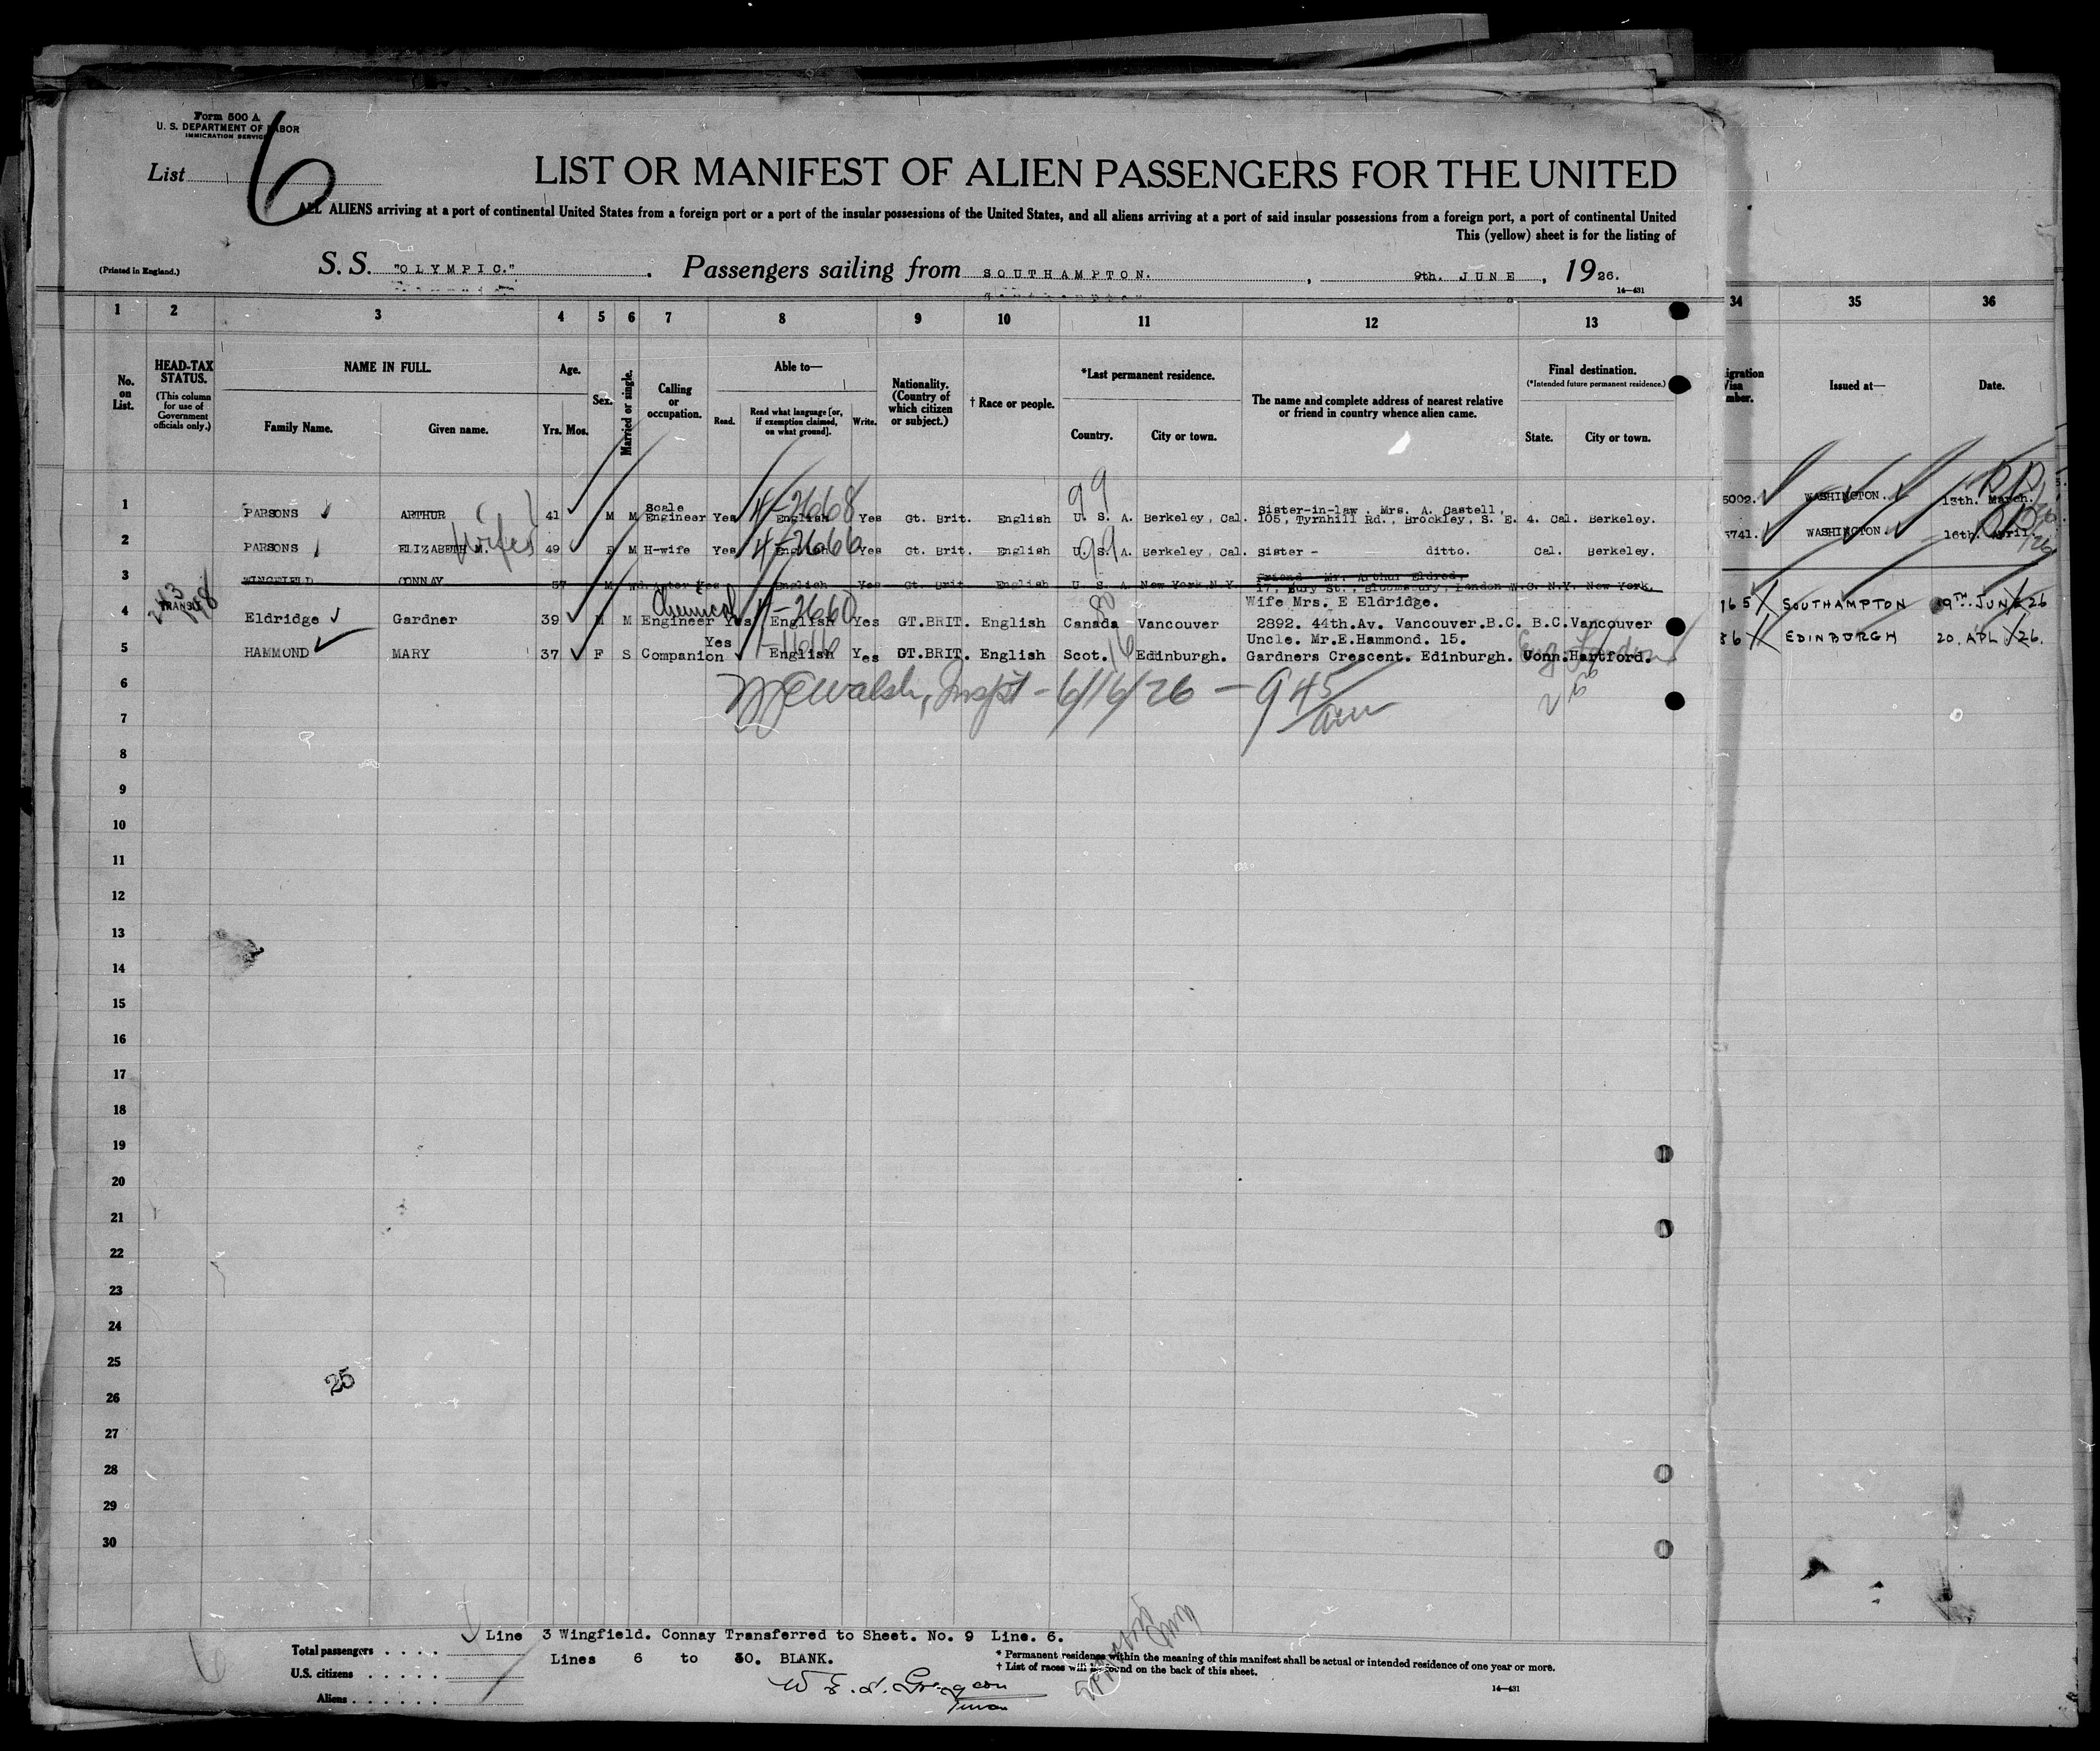 Form 500 A
U. S. DEPARTMENT OF LABOR
IMMIGRATION SERVICE
List 6
LIST OR MANIFEST OF ALIEN PASSENGERS FOR THE UNITED
ALL ALIENS arriving at a port of continental United States from a foreign port or a port of the insular possessions of the United States, and all aliens arriving at a port of said insular possessions from a foreign port, a port of continental United
This (yellow) sheet is for the listing of
(Printed in England.)
S. S. "OLYMPIC." Passengers sailing from SOUTHAMPTON. , 9th. JUNE , 1926.
14—431
1 2 3 4 5 6 7 8 9 10 11 12 13 34 35 36
No. on List.
HEAD-TAX STATUS.
(This column for use of Government officials only.)
NAME IN FULL.
Family Name. Given name.
Age.
Yrs. Mos.
Sex.
Married or single.
Calling or occupation.
Able to—
Read. Read what language [or, if exemption claimed, on what ground]. Write.
Nationality. (Country of which citizen or subject.)
† Race or people.
*Last permanent residence.
Country. City or town.
The name and complete address of nearest relative or friend in country whence alien came.
Final destination.
(*Intended future permanent residence.)
State. City or town.
Issued at—
Date.
99
1 PARSONS ARTHUR 41 M M Scale Engineer Yes 4-2668 English Yes Gt. Brit. English U. S. A. Berkeley, Cal. Sister-in-law, Mrs. A. Castell, 105, Tyrnhill Rd., Brockley, S. E. 4. Cal. Berkeley. 5002. WASHINGTON. 13th. March.
wife
2 PARSONS ELIZABETH M. 49 F M H-wife Yes 4-2666 English Yes Gt. Brit. English U.S.A. Berkeley, Cal. Sister - ditto. Cal. Berkeley. 5741. WASHINGTON. 16th. April
99
3 WINGFIELD CONNAY 57 M Wd. Actor Yes English Yes Gt. Brit English U. S. A. New York,N.Y. Friend Mr. Arthur Eldred, 17, Bury St., Bloomsbury, London W.C. N.Y. New York.
TRANSIT
Chemical
4 Eldridge Gardner 39 M M Engineer Yes 4-2660 English Yes GT.BRIT. English Canada Vancouver Wife Mrs. E Eldridge. 2892. 44th.Av. Vancouver.B.C. B.C.Vancouver 165 SOUTHAMPTON 9TH JUNE 26
5 HAMMOND MARY 37 F S Companion Yes English Yes GT.BRIT. English Scot. Edinburgh. Uncle. Mr.E.Hammond. 15. Gardners Crescent. Edinburgh. Conn.Hartford. 86 EDINBURGH 20. APL 26.
6
Walsh, Inspt - 6/16/26 - 945 am
7
8
9
10
11
12
13
14
15
16
17
18
19
20
21
22
23
24
25
25
26
27
28
29
30
Line 3 Wingfield. Connay Transferred to Sheet. No. 9 Line. 6.
Total passengers . . . .
Lines 6 to 30. BLANK.
* Permanent residence within the meaning of this manifest shall be actual or intended residence of one year or more.
U.S. citizens . . . . .
† List of races will be found on the back of this sheet.
Aliens . . . . . .
14—431